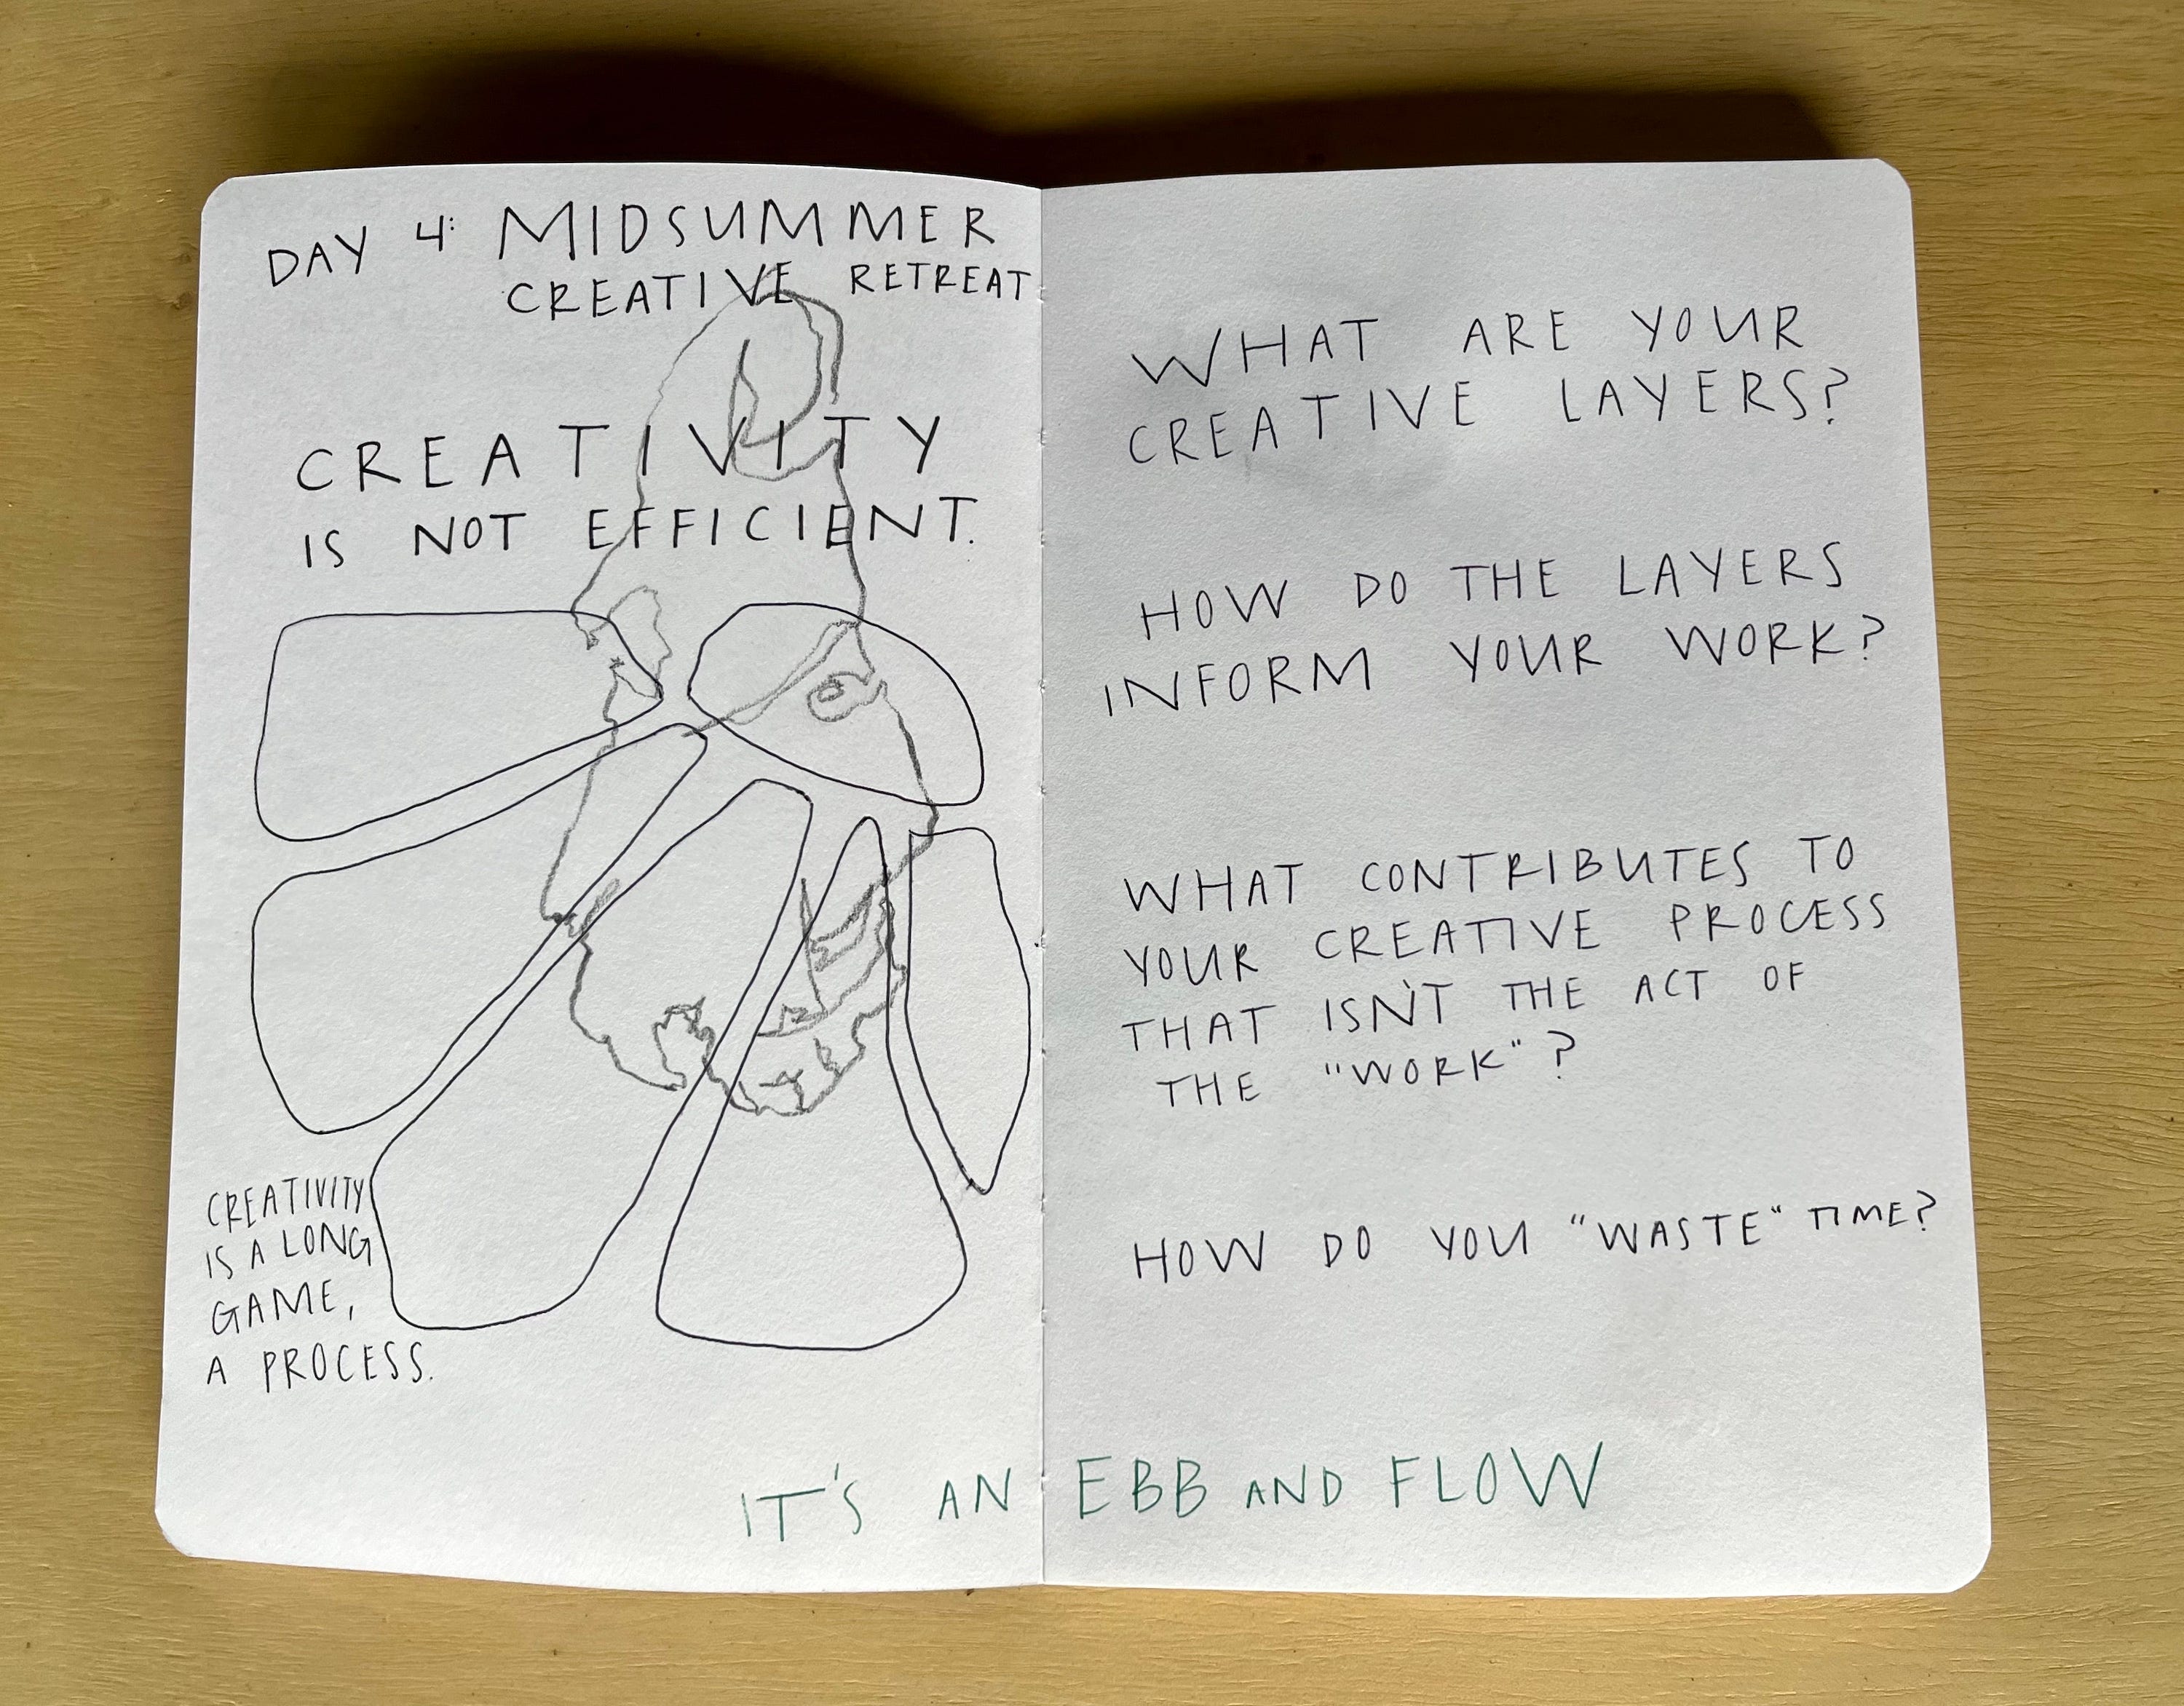 DAY 4: MIDSUMMER
CREATIVE RETREAT
CREATIVITY
IS NOT EFFICIENT.
CREATIVITY
IS A LONG
GAME,
A PROCESS.
WHAT ARE YOUR
CREATIVE LAYERS?
HOW DO THE LAYERS
INFORM YOUR WORK?
WHAT CONTRIBUTES TO
YOUR CREATIVE PROCESS
THAT ISN'T THE ACT OF
THE "WORK"?
HOW DO YOU "WASTE" TIME?
IT'S AN EBB AND FLOW